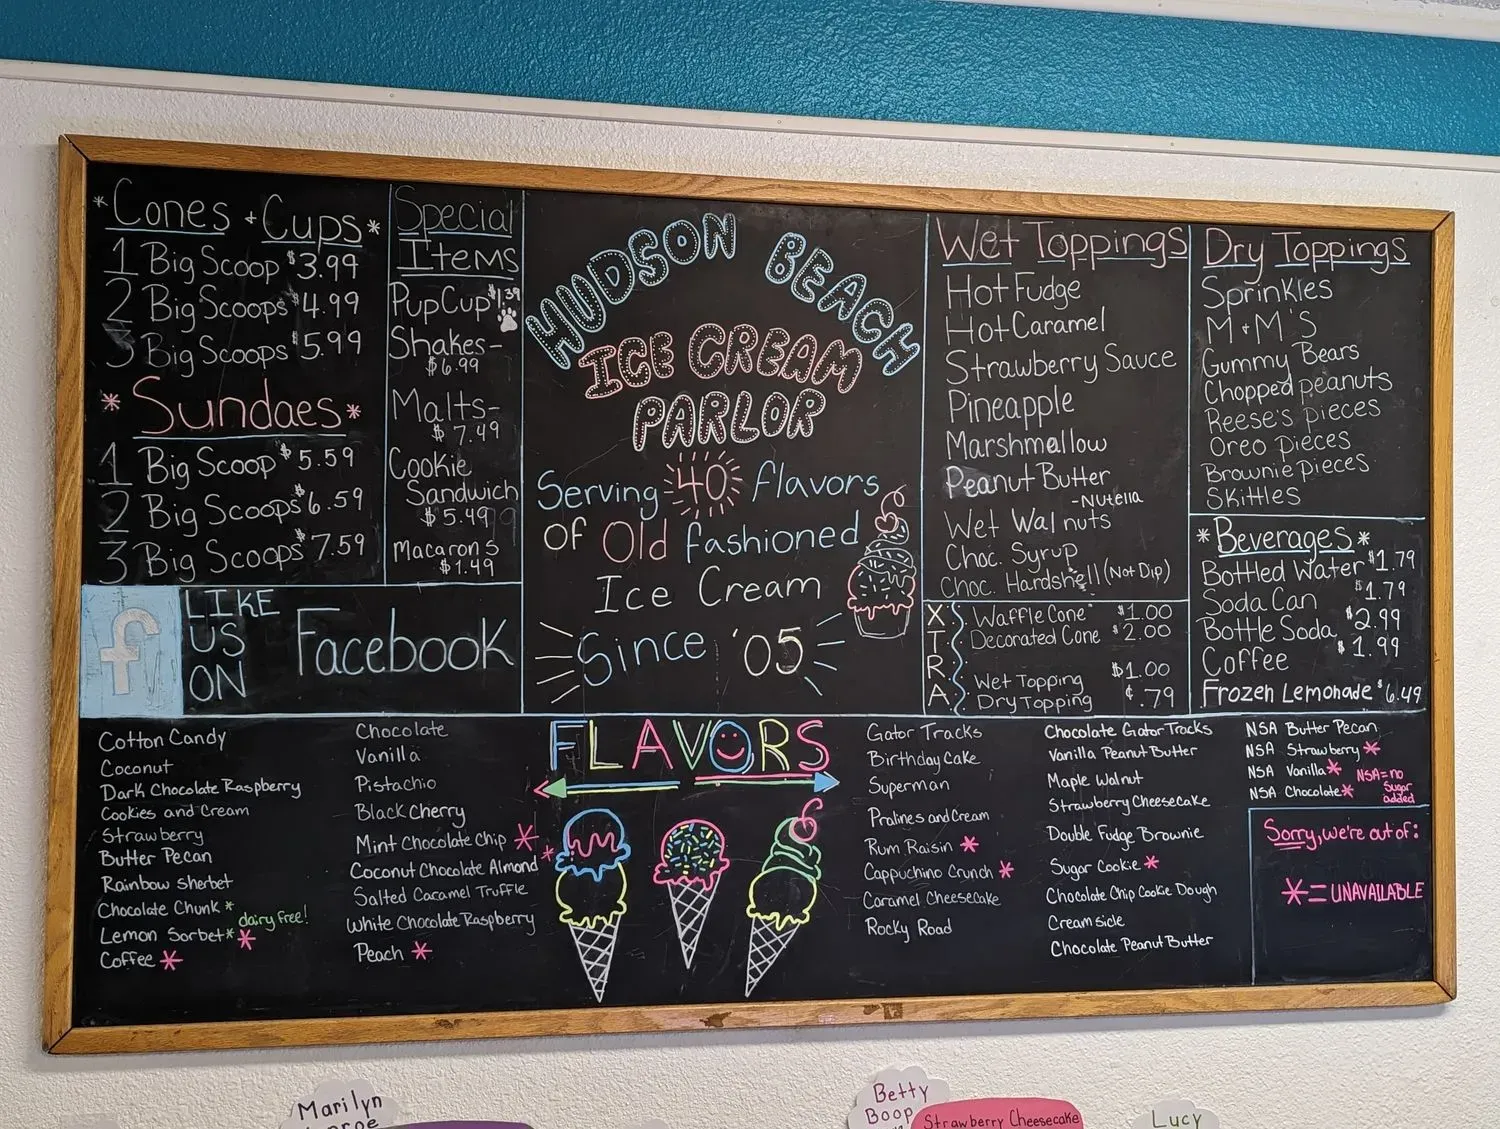 *Cones + Cups*
1 Big Scoop $3.99
2 Big Scoops $4.99
3 Big Scoops $5.99
* Sundaes *
1 Big Scoop $5.59
2 Big Scoops $6.59
3 Big Scoops $7.59
Special
Items
PupCup $1.39
Shakes-
$6.99
Malts-
$7.49
Cookie
Sandwich
$5.49
Macarons
$1.49
f
LIKE
US
ON
Facebook
HUDSON BEACH
ICE CREAM
PARLOR
Serving 40 flavors
of Old fashioned
Ice Cream
Since '05
Wet Toppings
Hot Fudge
Hot Caramel
Strawberry Sauce
Pineapple
Marshmallow
Peanut Butter
-Nutella
Wet Walnuts
Choc. Syrup
Choc. Hardshell (Not Dip)
XTRA
Waffle Cone $1.00
Decorated Cone $2.00
Wet Topping $1.00
Dry Topping ¢.79
Dry Toppings
Sprinkles
M+M'S
Gummy Bears
Chopped peanuts
Reese's pieces
Oreo pieces
Brownie pieces
Skittles
*Beverages*
Bottled Water $1.79
Soda Can $1.79
Bottle Soda $2.99
Coffee $1.99
Frozen Lemonade $6.49
FLAVORS
Cotton Candy
Coconut
Dark Chocolate Raspberry
Cookies and Cream
Strawberry
Butter Pecan
Rainbow sherbet
Chocolate Chunk *
dairy free!
Lemon Sorbet* *
Coffee *
Chocolate
Vanilla
Pistachio
Black Cherry
Mint Chocolate Chip *
Coconut Chocolate Almond *
Salted Caramel Truffle
White Chocolate Raspberry
Peach *
Gator Tracks
Birthday Cake
Superman
Pralines and Cream
Rum Raisin *
Cappuchino Crunch *
Caramel Cheesecake
Rocky Road
Chocolate Gator Tracks
Vanilla Peanut Butter
Maple Walnut
Strawberry Cheesecake
Double Fudge Brownie
Sugar Cookie *
Chocolate Chip Cookie Dough
Creamsicle
Chocolate Peanut Butter
NSA Butter Pecan
NSA Strawberry *
NSA Vanilla *
NSA Chocolate *
NSA = no
Sugar
added
Sorry, we're out of:
* = UNAVAILABLE
Marilyn
Betty
Boop
Strawberry Cheesecake
Lucy